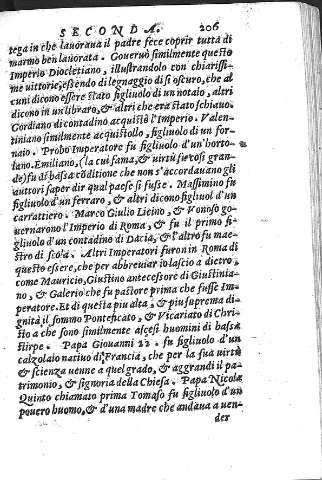 SECONDA. 206
tega in che lavoraua il padre fece coprir tutta di
marmo ben lavorata. Gouernò similmente questo
Imperio Diocletiano, illustrandolo con chiarissi-
me uittorie, essendo di legnaggio di sì oscuro, che al
cuni dicono essere stato figliuolo di un notaio, altri
dicono in un libraro, & altri che era stato schiauo.
Gordiano di contadino acquistò l'Imperio. Valen-
tiniano similmente acquistollo, figliuolo di un for-
naio. Probo Imperatore fu figliuolo d'un horto-
lano. Emiliano, (la cui fama, & uirtù fu così gran-
de) fu di bassa cõditione che non s'accordauano gli
auttori saper dir qual paese si fusse. Massimino fu
figliuolo d'un ferraro, & altri dicono figliuol d'un
carrattiero. Marco Giulio Licino, & Vonoso go-
uernarono l'Imperio di Roma, & fu il primo fi-
gliuolo d'un contadino di Dacia, & l'altro fu mae-
stro di scola. Altri Imperatori furon in Roma di
questo essere, che per abbreuiar io lascio a dietro,
come Mauricio, Giustino antecessore di Giustinia-
no, & Galerio che fu pastore prima che fusse Im-
peratore. Et di questa piu alta, & piu suprema di-
gnità il sommo Pontificato, & Vicariato di Chri-
sto a che sono similmente ascesi huomini di bassa
stirpe. Papa Giouanni 22. fu figliuolo d'un
calzolaio natiuo di Francia, che per la sua uirtù
& scienza uenne a quel grado, & aggrandì il pa-
trimonio, & signoria della Chiesa. Papa Nicola
Quinto chiamato prima Tomaso fu figliuolo d'un
pouero huomo, & d'una madre che andaua a uen-
der